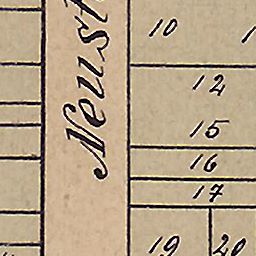 Neust
10
12
15
16
17
19 20